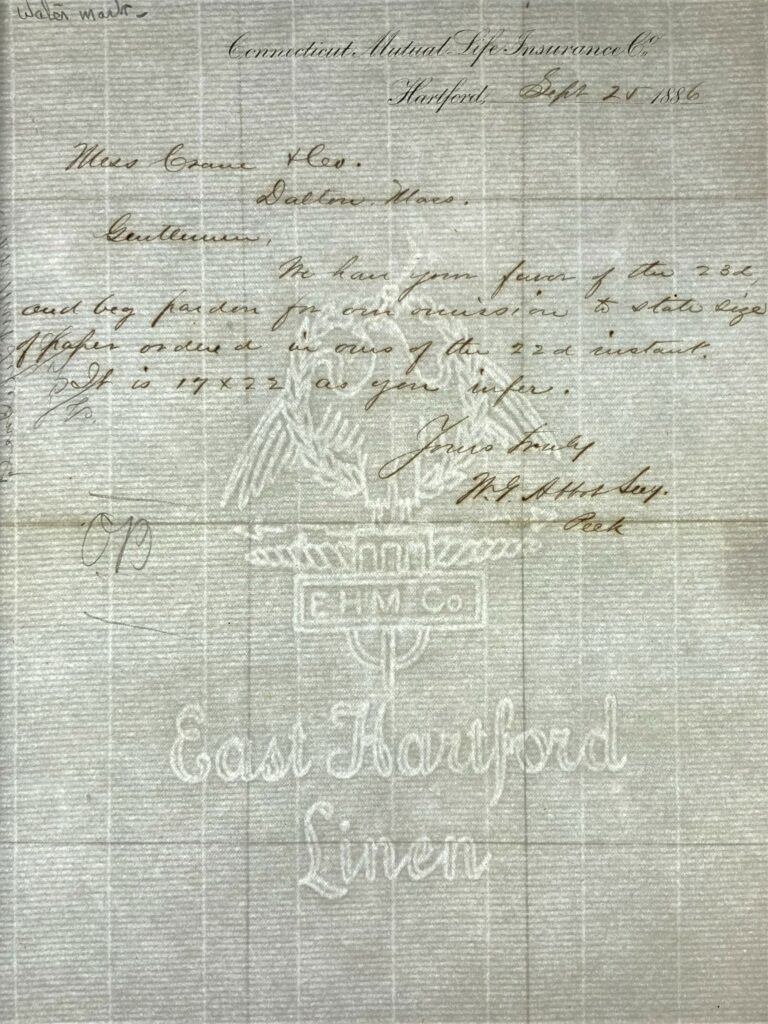 Water mark-
Connecticut Mutual Life Insurance Co.
Hartford, Sept 25 1886
Mess Crane & Co.
Dalton Mass.
Gentlemen,
We have your favor of the 23d,
and beg pardon for our omission to state size
of paper ordered in ours of the 22d instant.
It is 17 x 22 as you infer.
Yours truly
W. G. Abbot Secy.
E H M Co
East Hartford
Linen